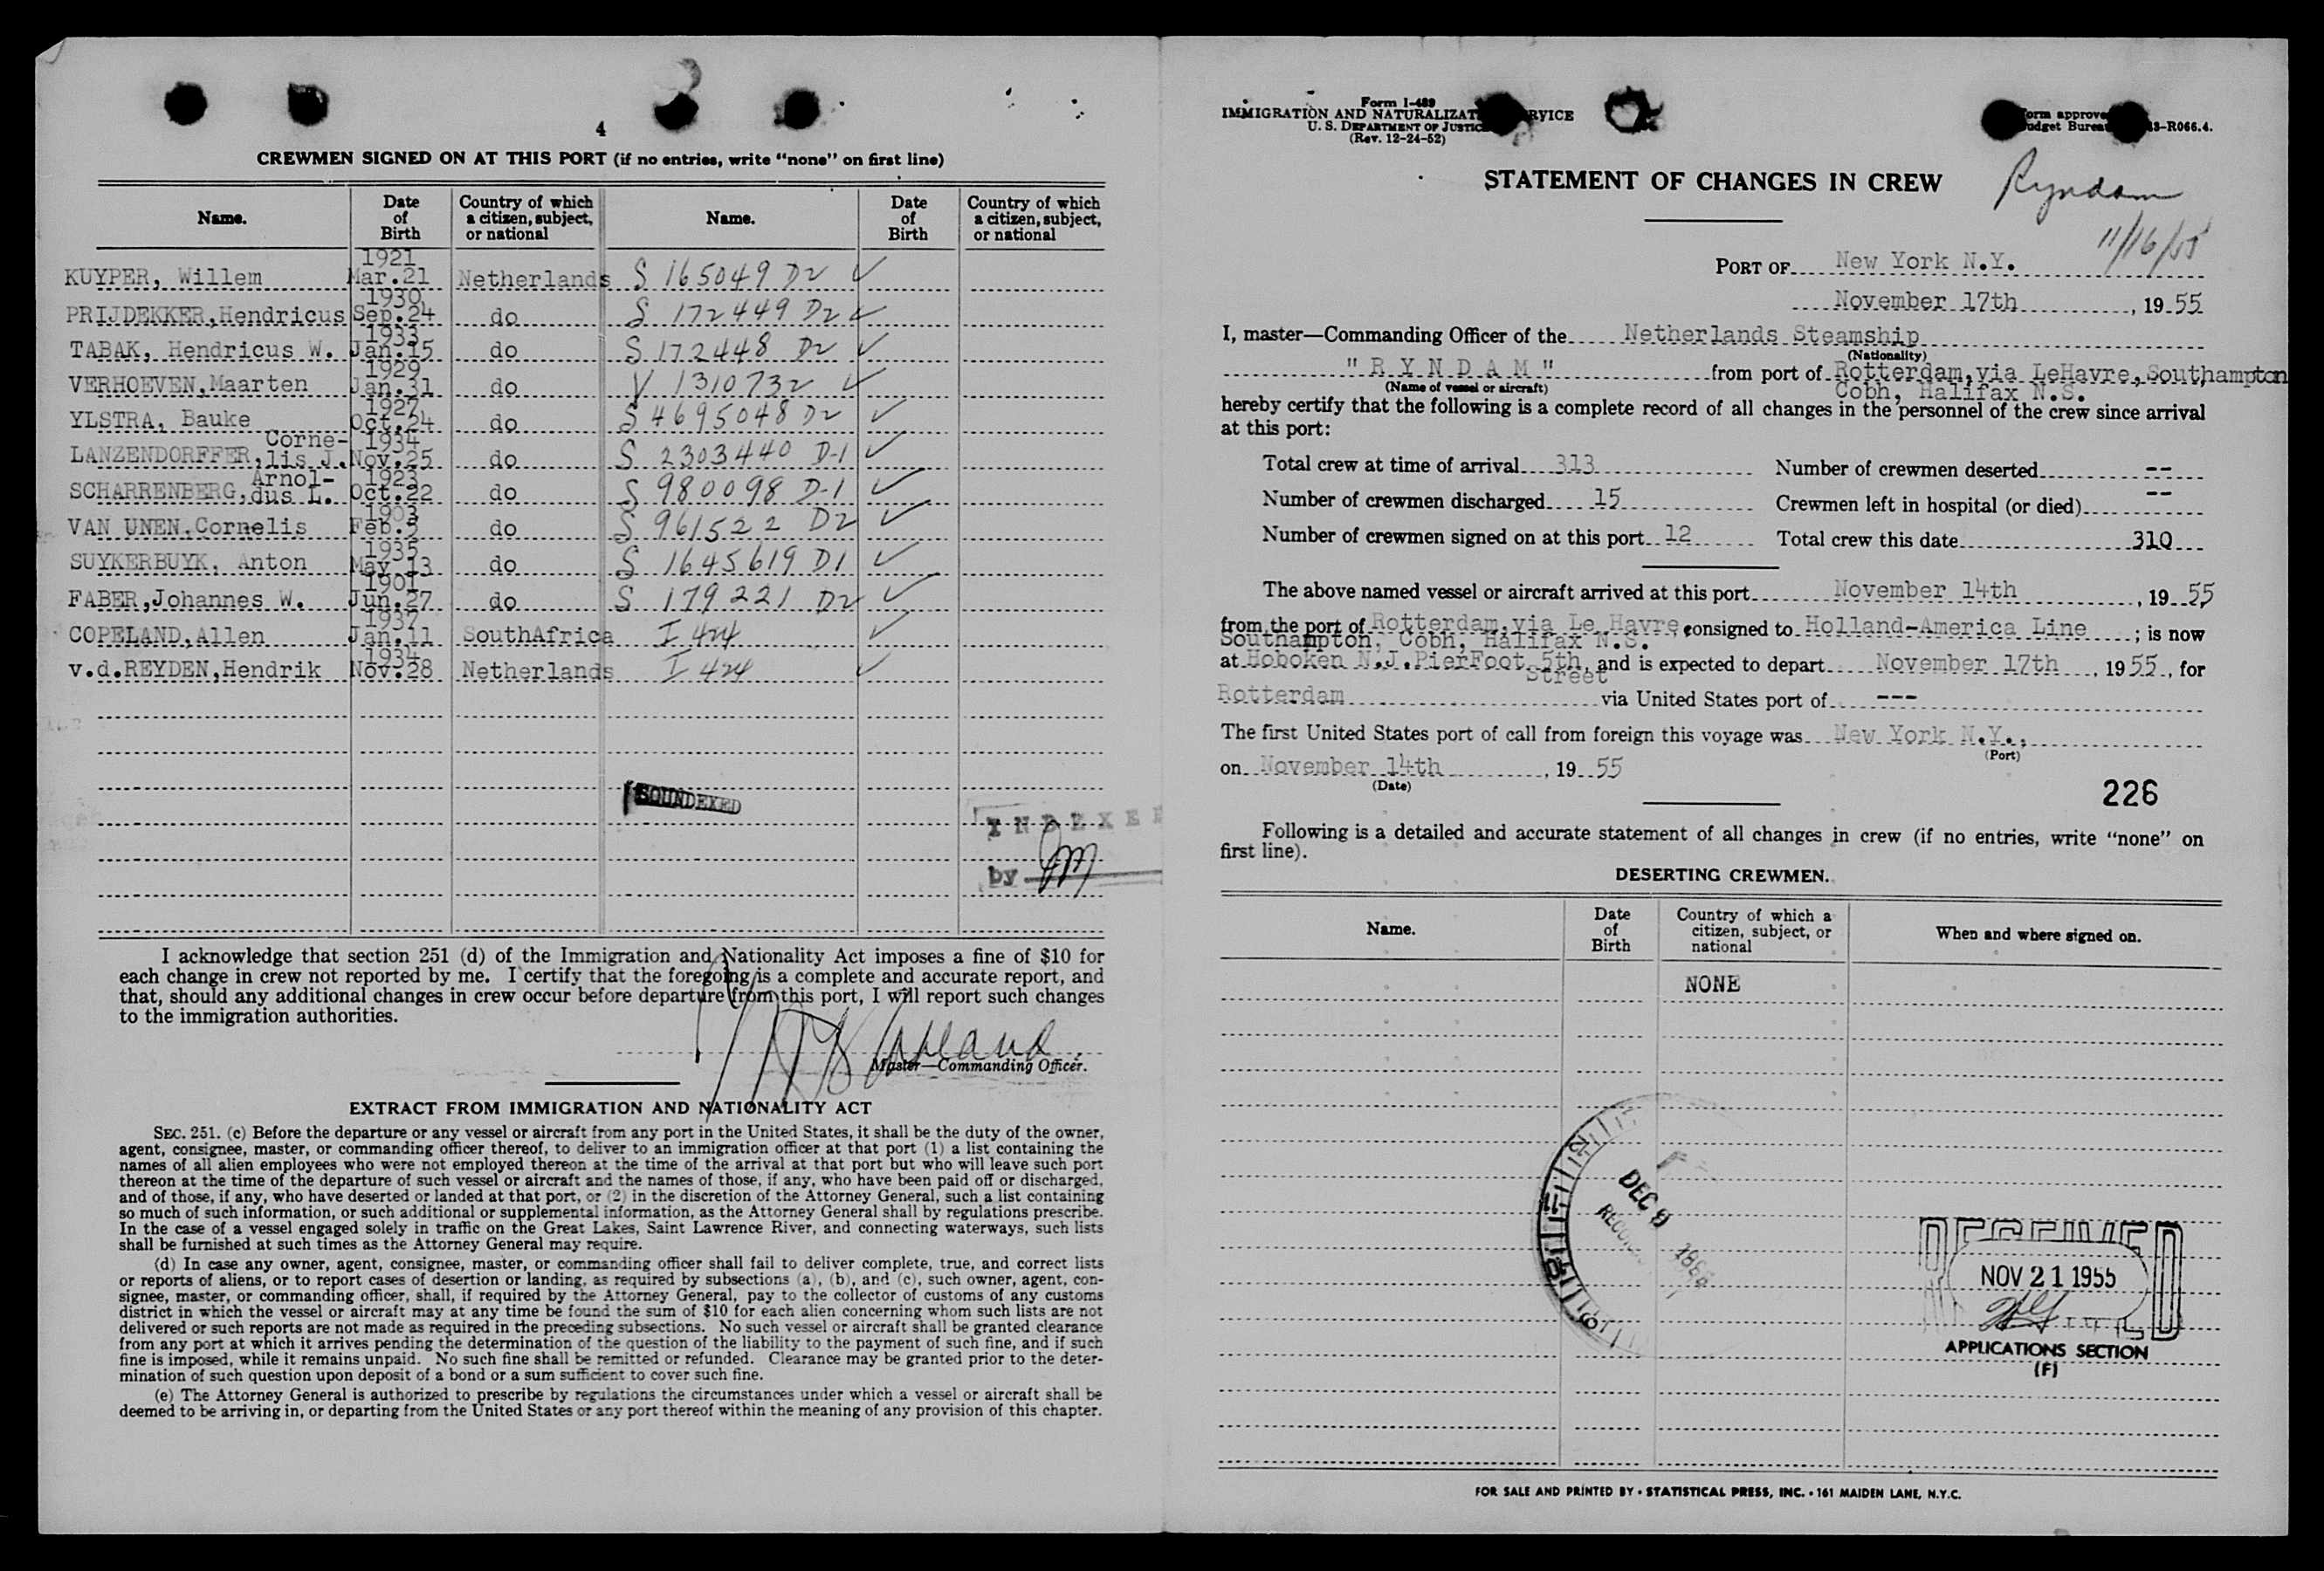 4
CREWMEN SIGNED ON AT THIS PORT (if no entries, write “none” on first line)
Name. Date of Birth Country of which a citizen, subject, or national Name. Date of Birth Country of which a citizen, subject, or national
KUYPER, Willem 1921 Mar.21 Netherlands S 165049 D2 ✓
PRIJDEKKER,Hendricus 1930 Sep.24 do S 172449 D2 ✓
TABAK, Hendricus W. 1933 Jan.15 do S 172448 D2 ✓
VERHOEVEN,Maarten 1929 Jan.31 do V 1310732 ✓
YLSTRA, Bauke 1927 Oct.24 do S 4695048 D2 ✓
LANZENDORFFER, Corne-lis J. 1934 Nov.25 do S 2303440 D-1 ✓
SCHARRENBERG, Arnol-dus L. 1923 Oct.22 do S 980098 D-1 ✓
VAN UNEN,Cornelis 1903 Feb.5 do S 961522 D2 ✓
SUYKERBUYK, Anton 1935 May 13 do S 1645619 D1 ✓
FABER,Johannes W. 1901 Jun.27 do S 179221 D2 ✓
COPELAND,Allen 1937 Jan.11 SouthAfrica I 424 ✓
v.d.REYDEN,Hendrik 1934 Nov.28 Netherlands I 424 ✓
SOUNDEXED
INDEXE
by JM
I acknowledge that section 251 (d) of the Immigration and Nationality Act imposes a fine of $10 for
each change in crew not reported by me. I certify that the foregoing is a complete and accurate report, and
that, should any additional changes in crew occur before departure from this port, I will report such changes
to the immigration authorities.
Master—Commanding Officer.
EXTRACT FROM IMMIGRATION AND NATIONALITY ACT
SEC. 251. (c) Before the departure or any vessel or aircraft from any port in the United States, it shall be the duty of the owner,
agent, consignee, master, or commanding officer thereof, to deliver to an immigration officer at that port (1) a list containing the
names of all alien employees who were not employed thereon at the time of the arrival at that port but who will leave such port
thereon at the time of the departure of such vessel or aircraft and the names of those, if any, who have been paid off or discharged,
and of those, if any, who have deserted or landed at that port, or (2) in the discretion of the Attorney General, such a list containing
so much of such information, or such additional or supplemental information, as the Attorney General shall by regulations prescribe.
In the case of a vessel engaged solely in traffic on the Great Lakes, Saint Lawrence River, and connecting waterways, such lists
shall be furnished at such times as the Attorney General may require.
(d) In case any owner, agent, consignee, master, or commanding officer shall fail to deliver complete, true, and correct lists
or reports of aliens, or to report cases of desertion or landing, as required by subsections (a), (b), and (c), such owner, agent, con-
signee, master, or commanding officer, shall, if required by the Attorney General, pay to the collector of customs of any customs
district in which the vessel or aircraft may at any time be found the sum of $10 for each alien concerning whom such lists are not
delivered or such reports are not made as required in the preceding subsections. No such vessel or aircraft shall be granted clearance
from any port at which it arrives pending the determination of the question of the liability to the payment of such fine, and if such
fine is imposed, while it remains unpaid. No such fine shall be remitted or refunded. Clearance may be granted prior to the deter-
mination of such question upon deposit of a bond or a sum sufficient to cover such fine.
(e) The Attorney General is authorized to prescribe by regulations the circumstances under which a vessel or aircraft shall be
deemed to be arriving in, or departing from the United States or any port thereof within the meaning of any provision of this chapter.
Form I-489
IMMIGRATION AND NATURALIZAT RVICE
U. S. DEPARTMENT OF JUSTIC
(Rev. 12-24-52)
orm approve
udget Burea 43-R066.4.
STATEMENT OF CHANGES IN CREW
Ryndam
11/16/55
PORT OF New York N.Y.
November 17th, 19 55
I, master—Commanding Officer of the Netherlands Steamship
(Nationality)
"R Y N D A M" from port of Rotterdam,via LeHavre,Southampton
(Name of vessel or aircraft) Cobh, Halifax N.S.
hereby certify that the following is a complete record of all changes in the personnel of the crew since arrival
at this port:
Total crew at time of arrival 313 Number of crewmen deserted --
Number of crewmen discharged 15 Crewmen left in hospital (or died) --
Number of crewmen signed on at this port 12 Total crew this date 310
The above named vessel or aircraft arrived at this port November 14th, 19 55
from the port of Rotterdam,via Le Havre consigned to Holland-America Line; is now
Southampton, Cobh, Halifax N.S.
at Hoboken N.J.PierFoot 5th, and is expected to depart November 17th, 19 55, for
Street
Rotterdam via United States port of ---
The first United States port of call from foreign this voyage was New York N.Y.,
(Port)
on November 14th, 19 55
(Date)
226
Following is a detailed and accurate statement of all changes in crew (if no entries, write “none” on
first line).
DESERTING CREWMEN.
Name. Date of Birth Country of which a citizen, subject, or national When and where signed on.
NONE
DEC 9
NOV 21 1955
APPLICATIONS SECTION
(F)
FOR SALE AND PRINTED BY • STATISTICAL PRESS, INC. • 161 MAIDEN LANE, N.Y.C.